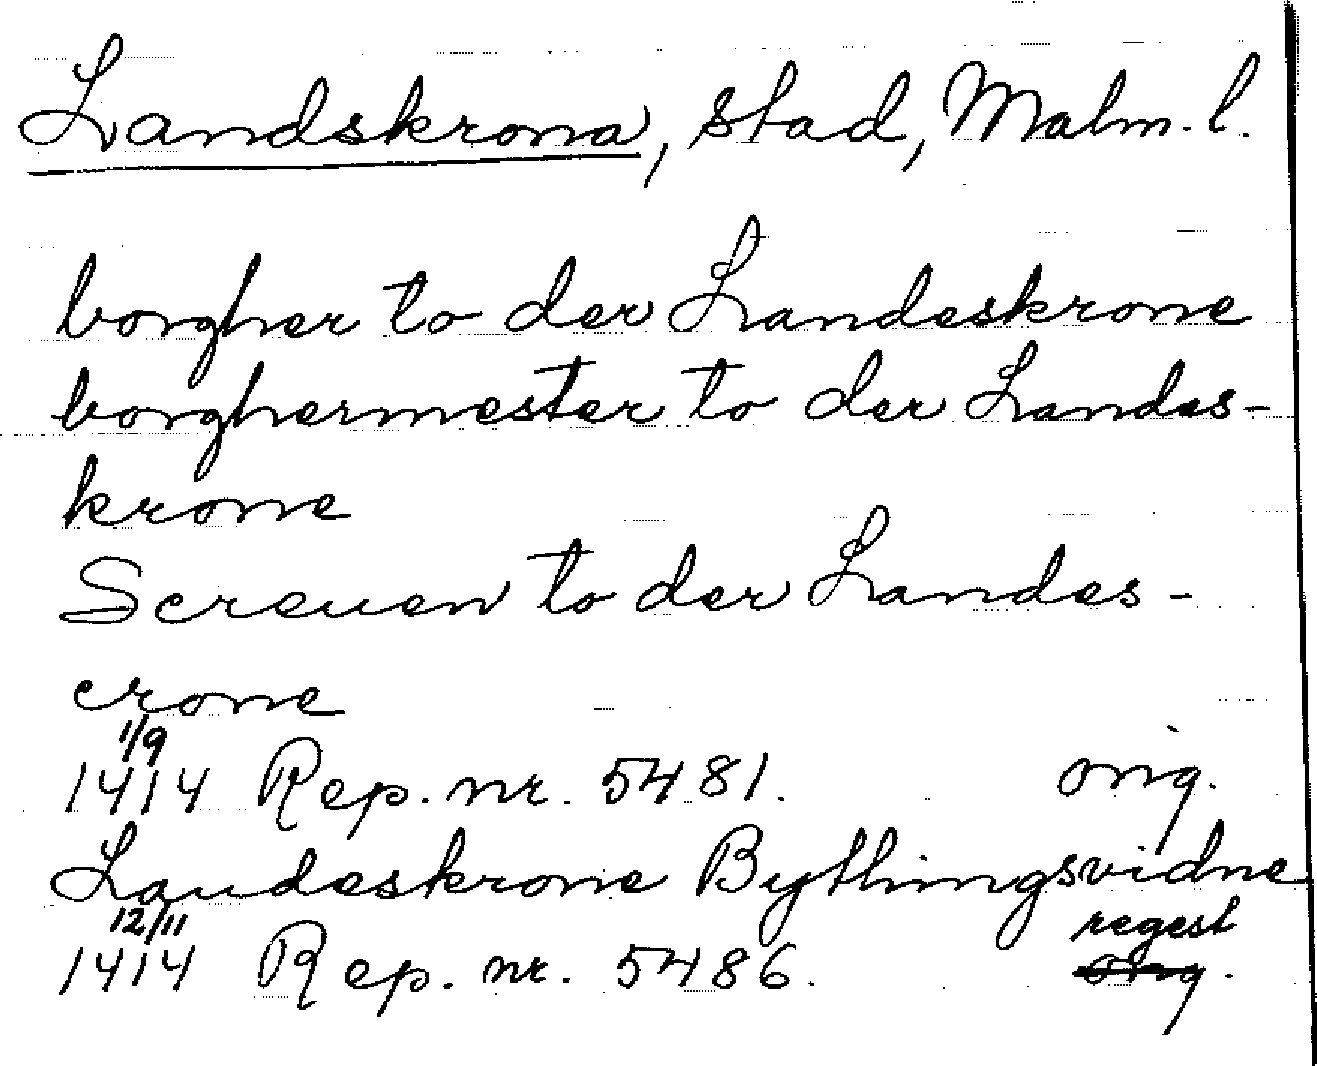 Landskrona, stad, Malm. l.
borgher to der Landeskrone
borghermester to der Landes-
krone
Screuen to der Landes-
crone
1/9
1414 Rep. nr. 5481. orig.
Landeskrone Bythingsvidne
12/11 regest
1414 Rep. nr. 5486. orig.